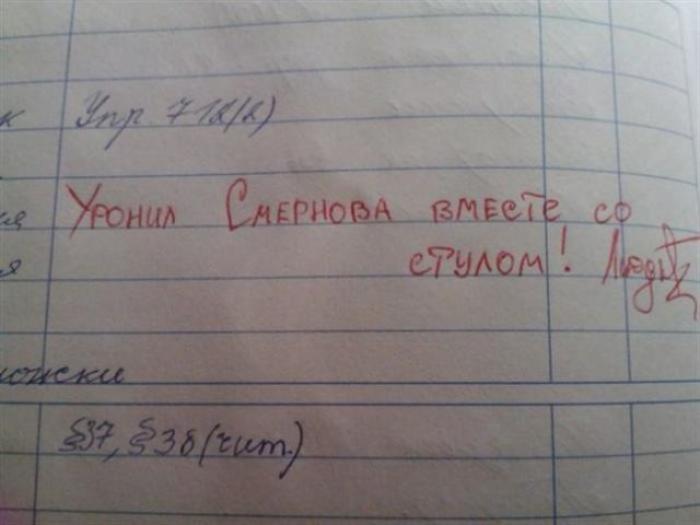 к Упр. 712(2)
Уронил Смернова вместе со
я стулом!
ложки
§37, §38 (чит.)